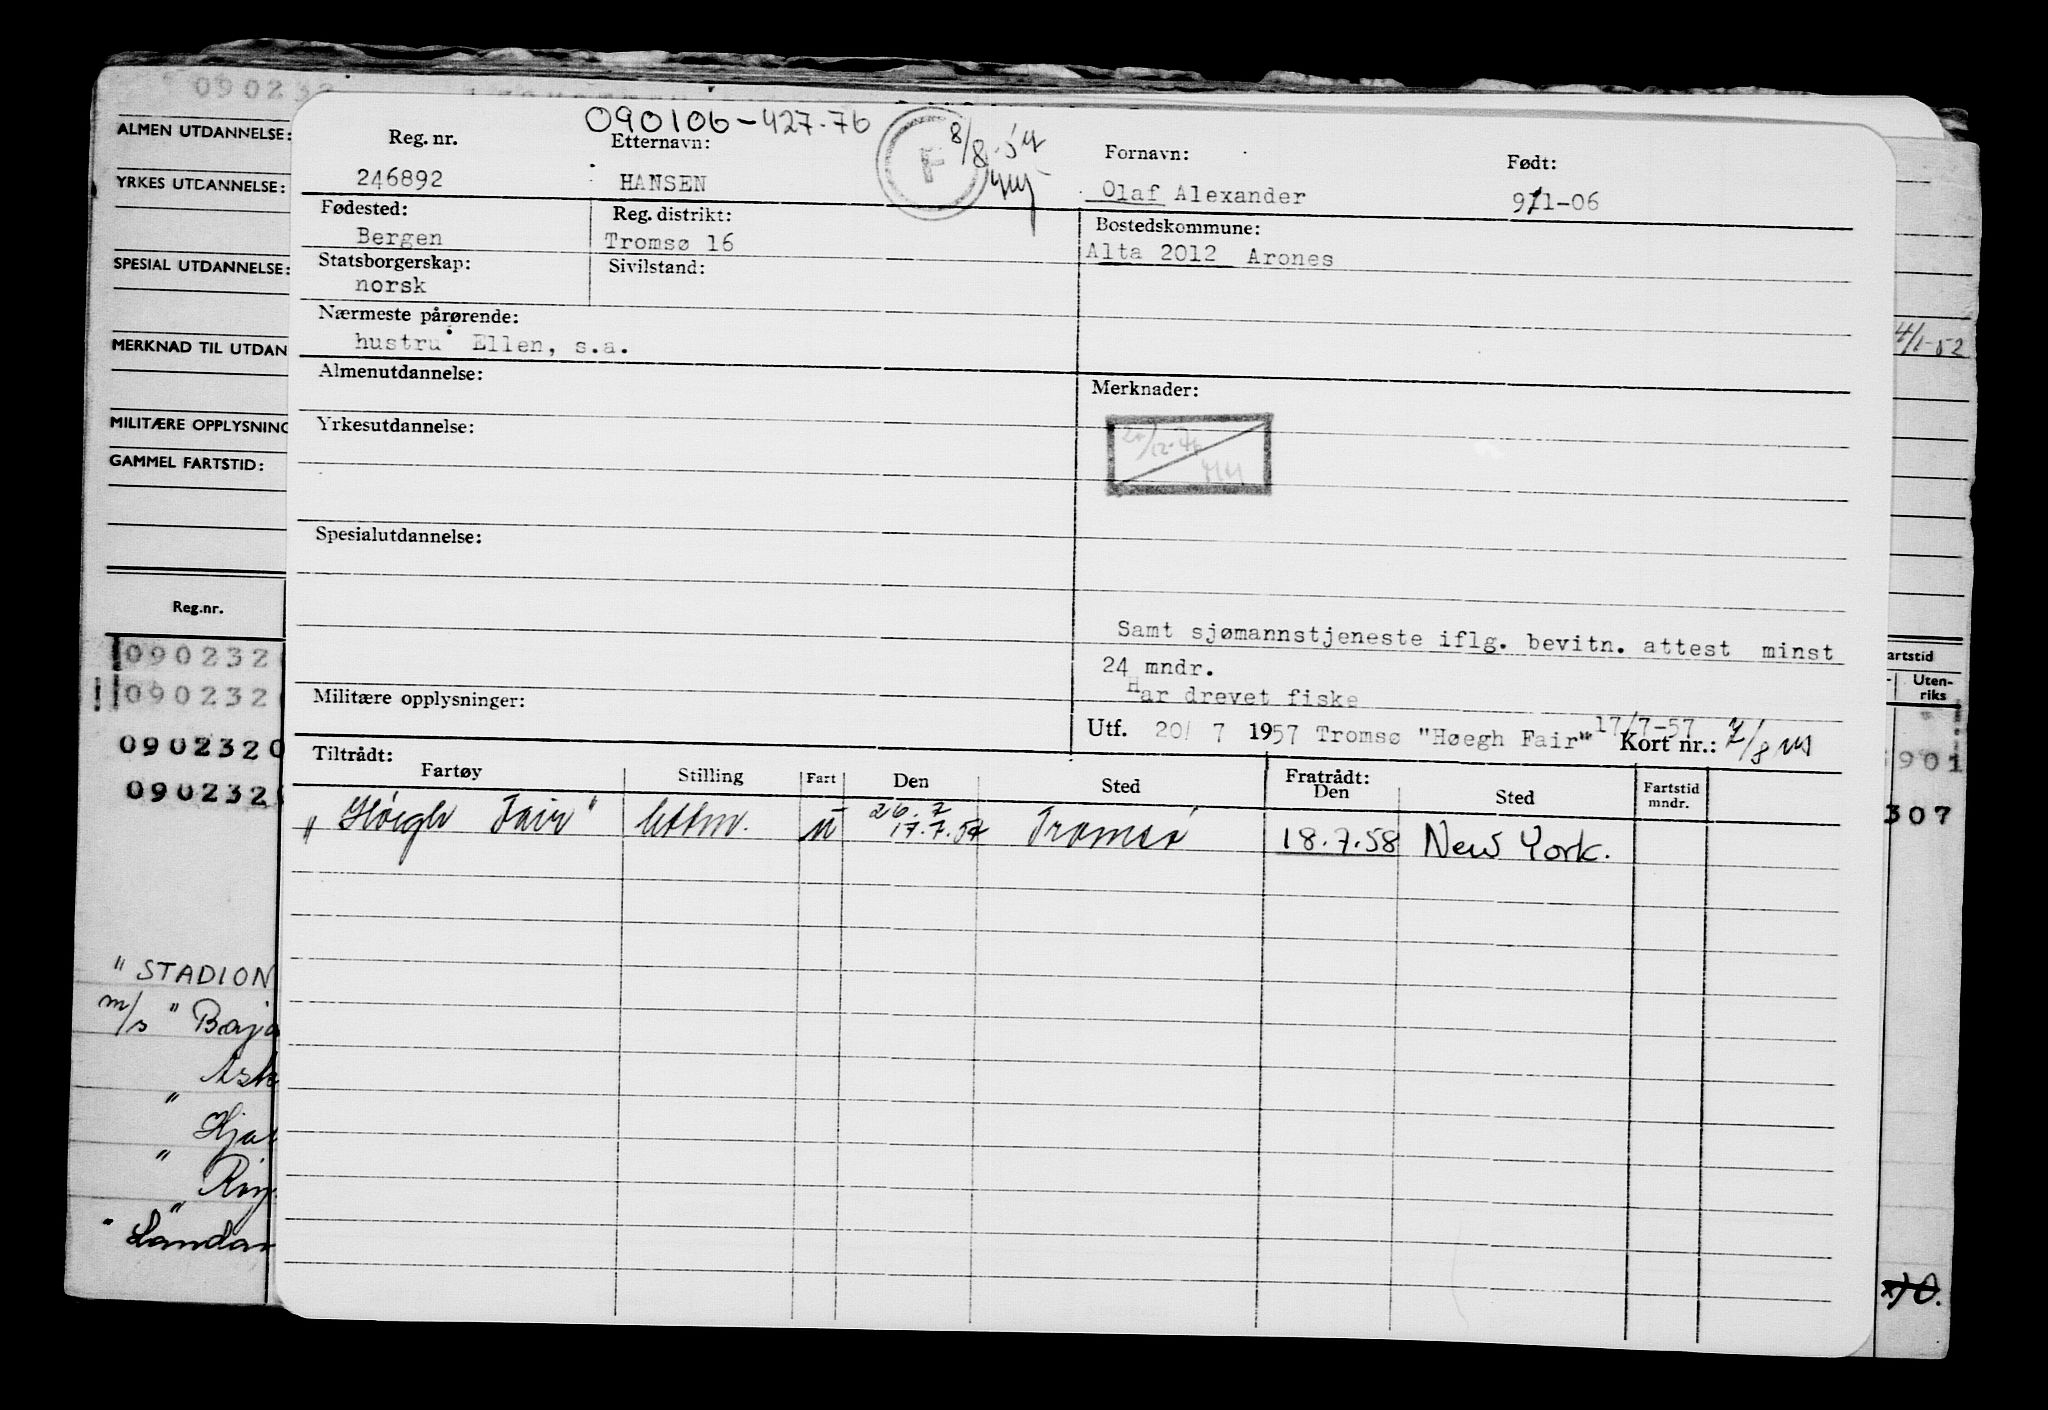 090232
ALMEN UTDANNELSE:
YRKES UTDANNELSE:
SPESIAL UTDANNELSE:
MERKNAD TIL UTDAN
MILITÆRE OPPLYSNING
GAMMEL FARTSTID:
Reg.nr.
090232
090232
0902320
090232
"STADION
m/s "Baja
Ask
" Hjal
"
" Landan
4/1-52
artstid
Uten-
riks
901
307
090106-427.76
Reg. nr. Etternavn: Fornavn: Født:
246892 HANSEN F 8/8-57 Olaf Alexander 9/1-06
Fødested: Reg. distrikt: Bostedskommune:
Bergen Tromsø 16 Alta 2012 Arones
Statsborgerskap: Sivilstand:
norsk
Nærmeste pårørende:
hustru Ellen, s.a.
Almenutdannelse: Merknader:
Yrkesutdannelse:
Spesialutdannelse:
Samt sjømannstjeneste iflg. bevitn. attest minst
24 mndr.
Har drevet fiske
Militære opplysninger:
Utf. 20/ 7 1957 Tromsø "Høegh Fair" 17/7-57 Kort nr.:
Tiltrådt: Fratrådt:
Fartøy Stilling Fart Den Sted Den Sted Fartstid
mndr.
"Høegh Fair" lettm. u 26.7
17.7.57 Tromsø 18.7.58 New York.